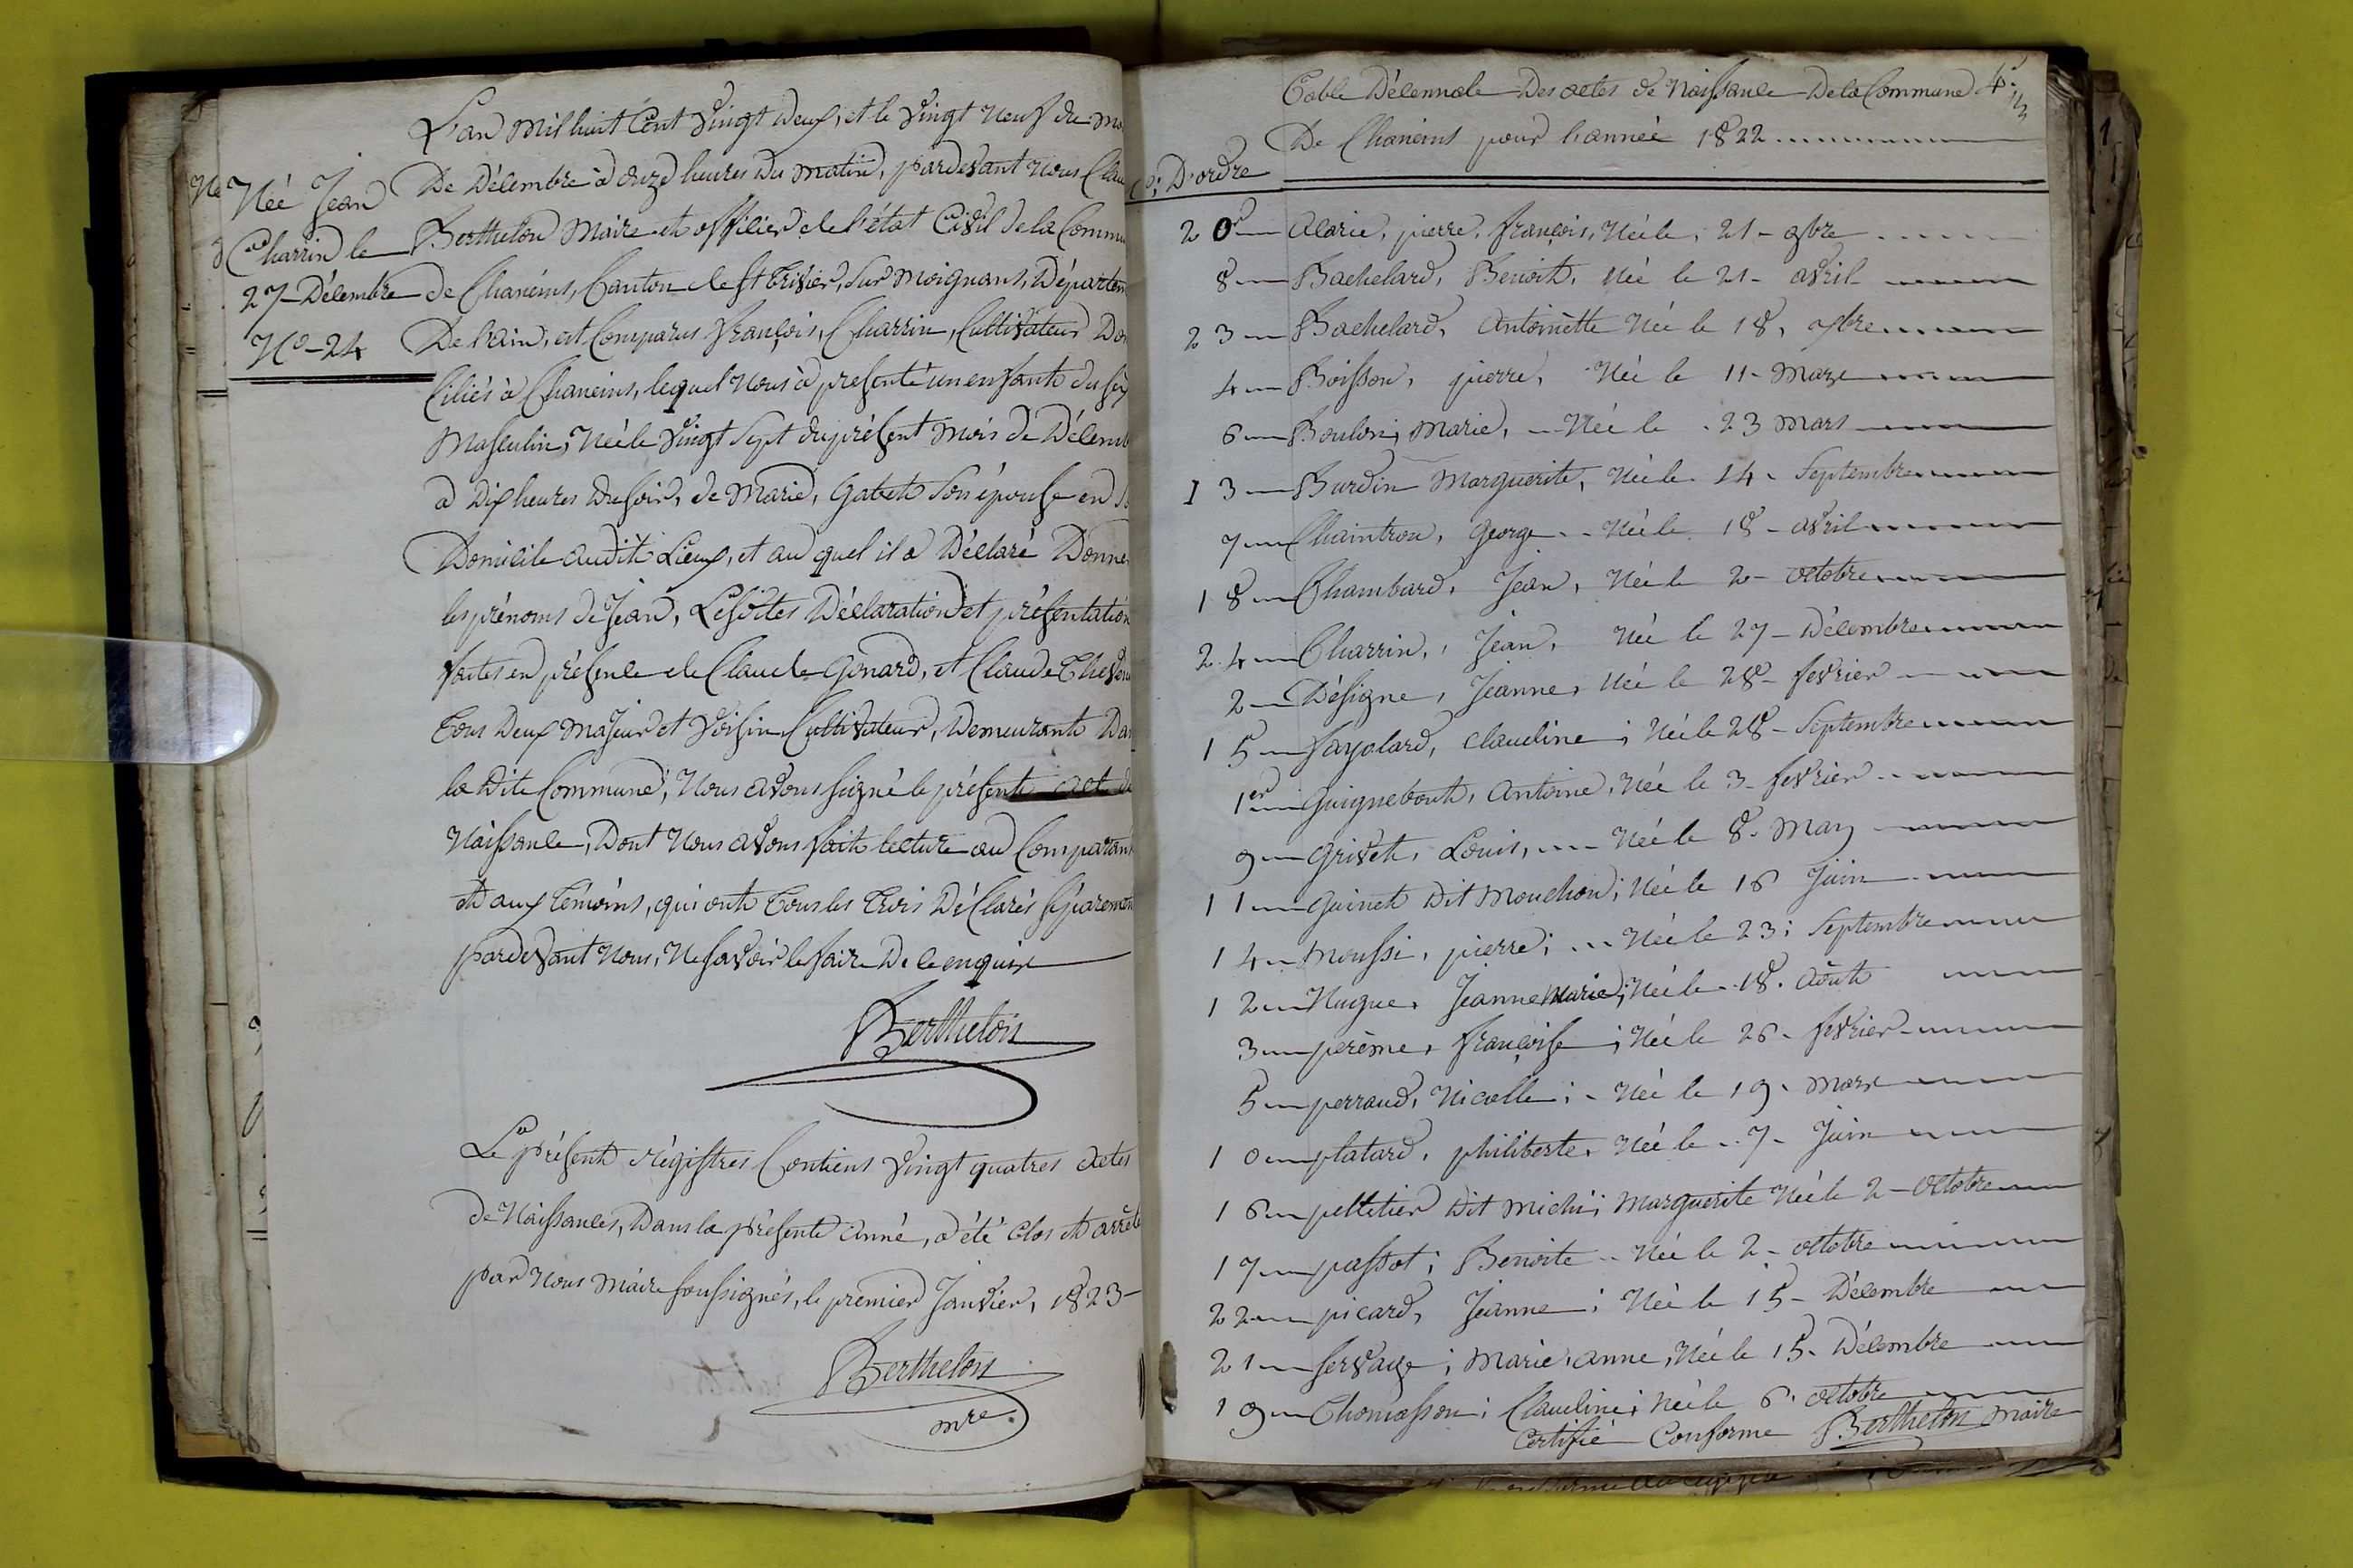 L'an mil huit Cent Vingt deux, et le Vingt Neuf du
De Décembre à onze heures du matin, pardevant Nous
Berthelon Maire et officier de l'état Civil de la
de Chaneins, Canton de St Trivier, sur Moignans,
De l'ain, est Comparus françois, Charrin, Cultivateur
Ciliés à Chaneins, lequel Nous à présenté un enfant du
Masculin, Née le Vingt Sept du présent mois de
a Dix heures du soir, de Marie, Gabet son épouse en
Domicile audit Lieux, et au quel il a Déclaré
les prénoms de Jean, Lesdites Déclaration et présentation
faites en présence de Claude Gonard, et Claude
tous Deux Majeur et Voisin Cultivateur, Demeurant
la Dite Commune, Nous avons signé le présent act
Naissance, Dont Nous avons fait lecture au Comparant
et aux témoins, qui ont tous les trois Déclarés séparement
pardevant Nous, Ne savoir le faire De ce enquis
Berthelon
Née Jean
Charrin le
27 Décembre
No 24
Le présent régistres Contiens Vingt quatres actes
de Naissances, Dans la présente anné, a été clos et arrêté
par Nous Maire soussignés, le premier Janvier, 1823
Berthelon
mre
Table Décennale Des actes de Naissance De la Commune
De Chaneins pour l'année 1822
D'ordre
20 Alarie, pierre, françois, Née le, 21 9bre
8 Bachelard, Benoit, Née le 21 avril
23 Bachelard, Antoinette Née le 18,
4 Boisson, pierre, Née le 11
6 Marie, Née le 23 Mars
13 Burdin Marguerite, Née le 14 Septembre
7 Chaintron, George Née le 18 avril
18 Chambard, Jean, Née le 2 octobre
24 Charrin, Jean, Née le 27 Décembre
2 Désigne, Jeanne, Née le 28 fevrier
15 fayolard, Claudine; Née le 28 Septembre
1er Guignebout, Antoine, Née le 3 fevrier
9 Grivet, Louis, Née le 8 May
11 Guinet Dit Mouchon; Née le 16 Juin
14 Moussi, pierre; Née le 23; Septembre
12 Nugue, Jeanne Marie; Née le 18 août
3 perème, françoise; Née le 26 fevrier
5 perraud, Nicolle; Née le 19 Mars
10 platard, philiberte, Née le 7 Juin
16 pelletier Dit michi; Marguerite Née le 2 octobre
17 passot; Benoite Née le 2 octobre
22 picard, Jeanne; Née le 15 Décembre
21 servaye; Marie, anne, Née le 15 Décembre
19 Thomasson; Claudine; Née le 6 octobre
Certifié Conforme Berthelon Maire